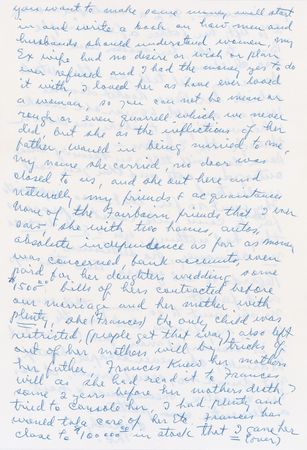 you want to make some money will start
in and write a book on how men and
husbands should understand women, my
Ex wife had no desire or wish or plan
ever refused and I had the money, yes to do
it with, I loved her as have ever loved
a woman, so you can not be mean or
rough or even quarrell which we never
did, but she as the reflections of her
father, would in being married to me,
my name she carried, no door was
closed to us, and she out here and
naturally my friends + acquaintances
none of the Fairbairn friends that I ever
saw, she with two homes, autos,
absolute independence as far as money
was concerned, bank accounts, even
paid for her daughters wedding some
$1500.00 bills of hers contracted before
our marriage and her mother with
plenty, she (Frances) the only child was
restricted, (people get that way) also left
out of her mothers will by tricks of
her father, Frances knew her mothers
will as she had read it to Frances
some 2 years before her mothers death, I
tried to console her, I had plenty and
would take care of her etc. Frances has
close to $100000.00 in stock that I gave her
(over)